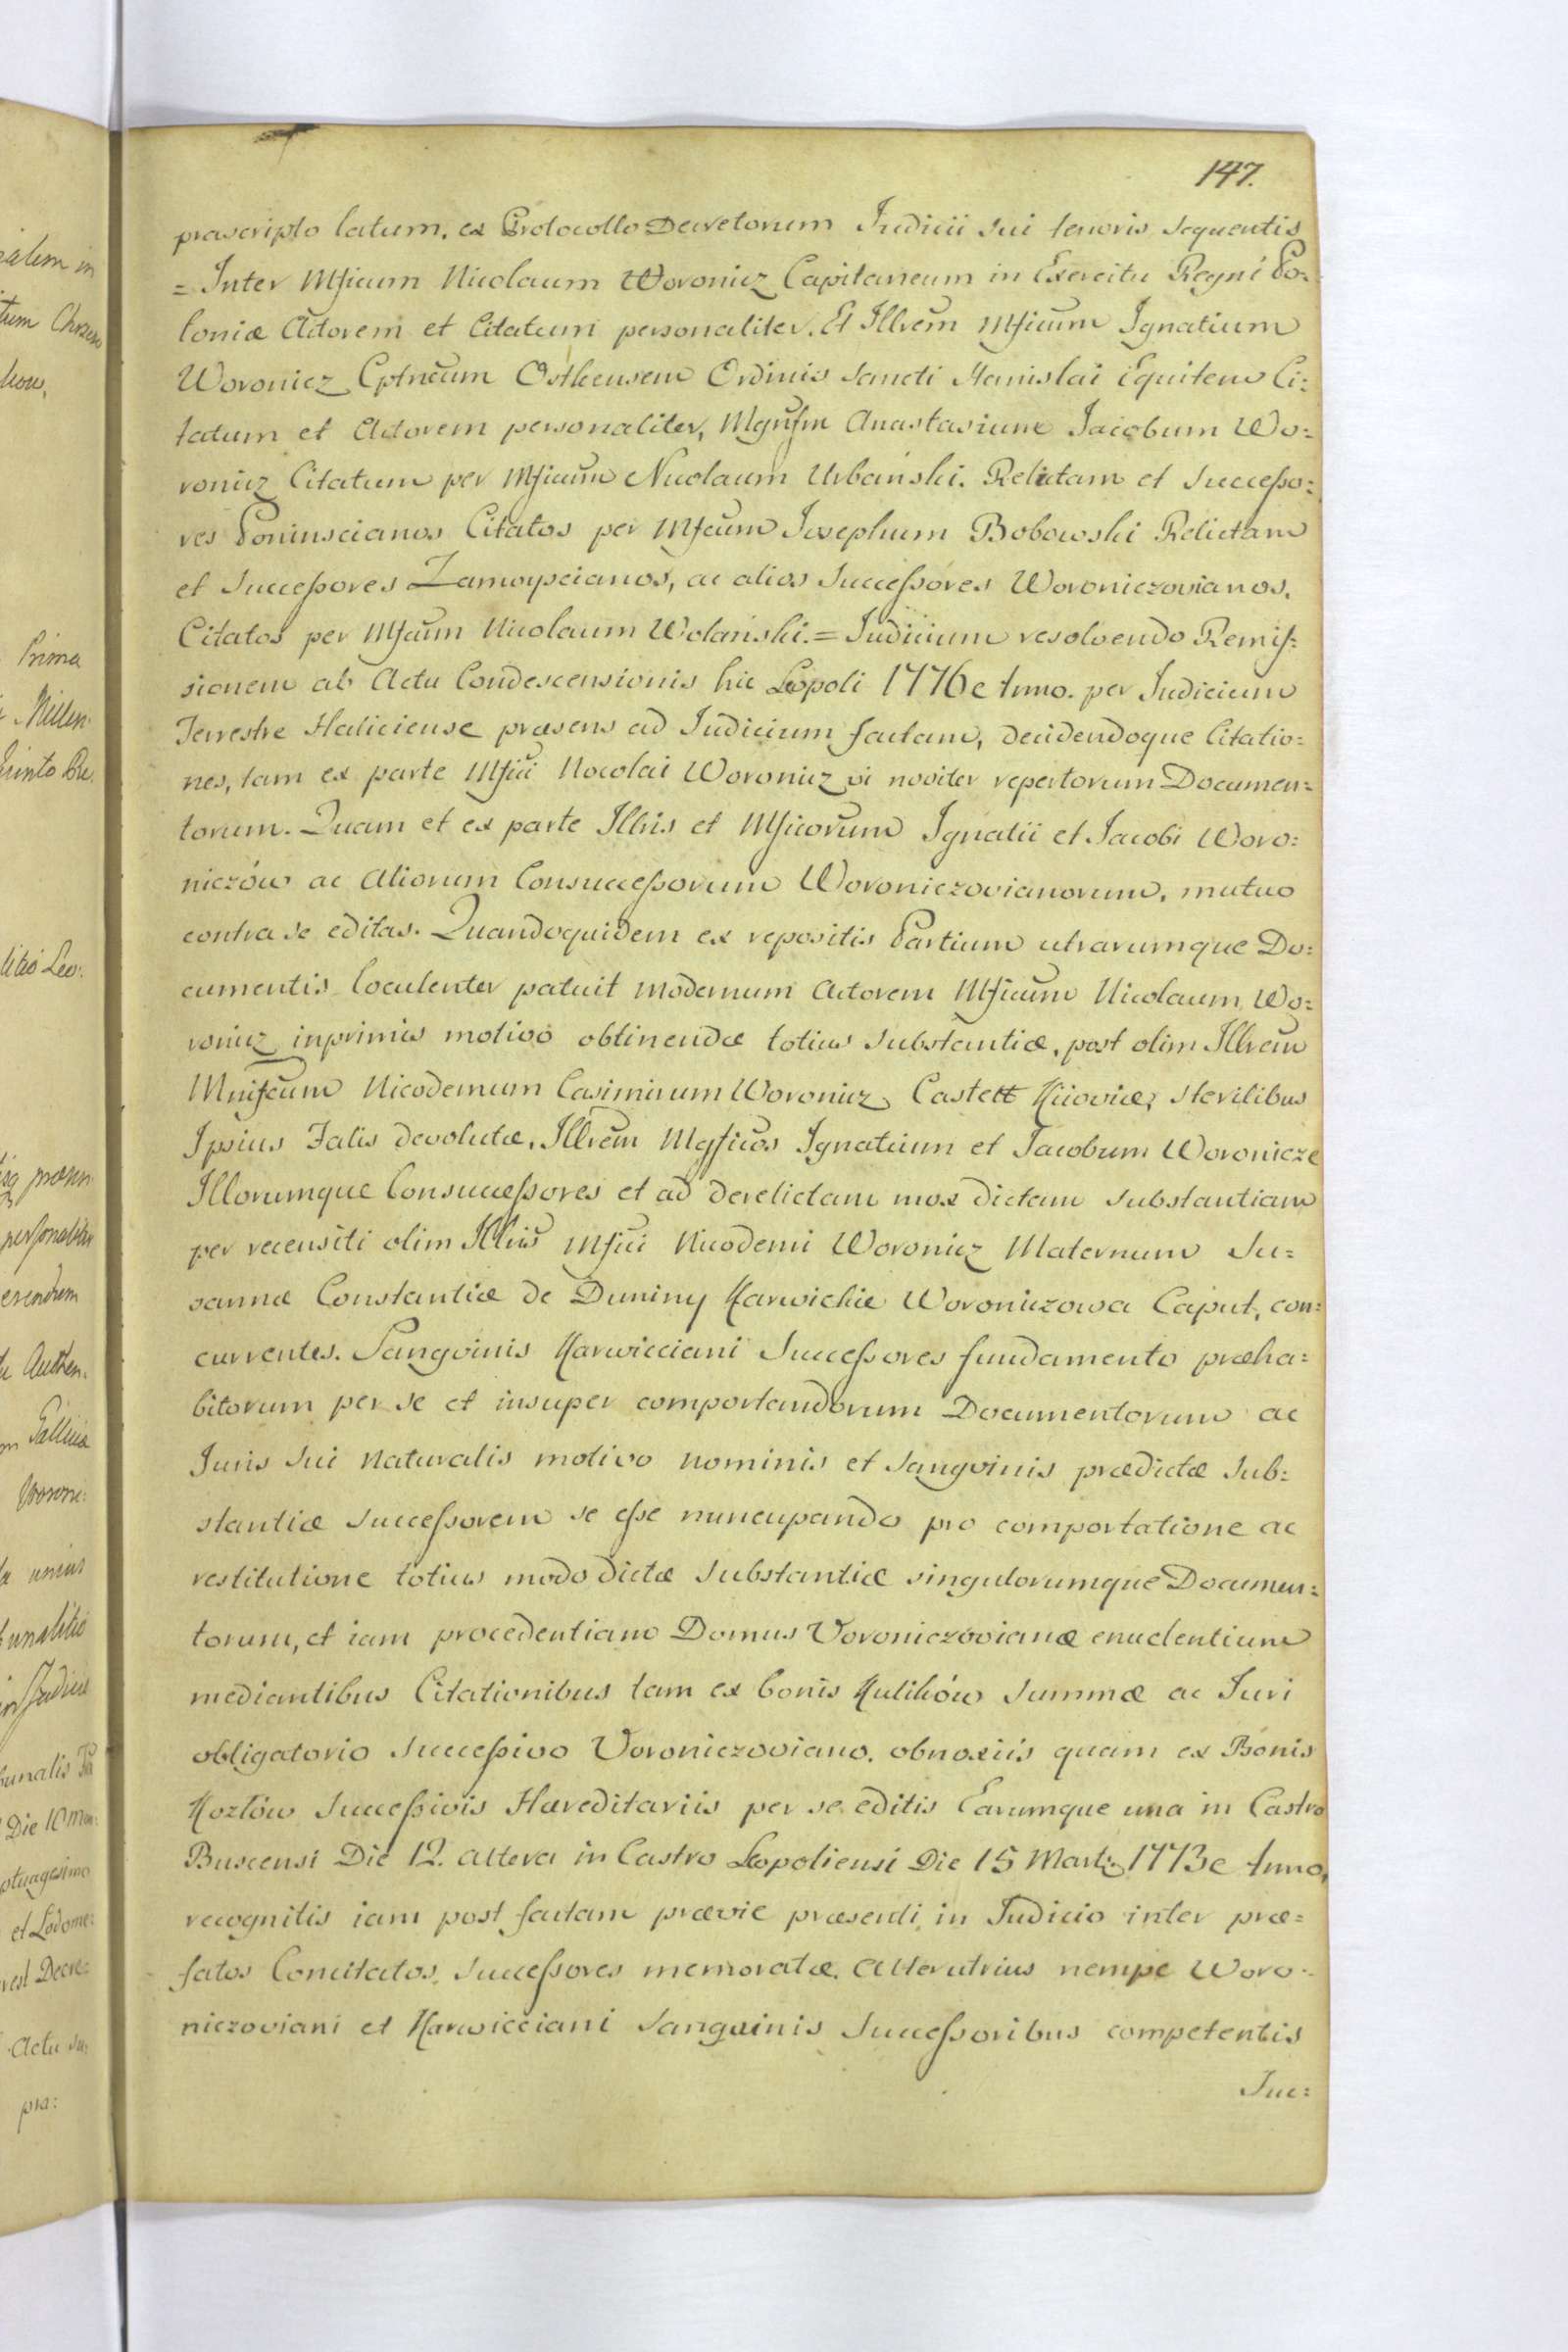 147.
præscripto latum, ex Protocollo Decretorum Judicii sui tenoris sequentis
= Inter Mficum Nicolaum Woronicz Capitaneum in Exercitu Regni Po=
loniæ Actorem et Citatum personaliter. Et Illrem Mficum Ignatium
Woronicz Cptneum Ostheensem Ordinis Sancti Stanislai Equitem Ci=
tatum et Actorem personaliter, Mgnfm Anastasium Jacobum Wo=
ronicz Citatum per Mficum Nicolaum Urbański. Relictam et Successo=
res Poninscianos Citatos per Mfcum Josephum Bobowski Relictam
et Successores Zamoyscianos, ac alios Successores Woroniczovianos.
Citatos per Mfcum Nicolaum Wolański. = Judicium resolvendo Remis=
sionem ab Actu Condescensionis hic Leopoli 1776 e Anno. per Judicium
Terrestre Haliciense præsens ad Judicium factam, decidendoque Citatio=
nes, tam ex parte Mfici Nocolai Woronicz vi noviter repertorum Documen=
torum. Quam et ex parte Illris et Mficorum Ignatii et Jacobi Woro=
niczów ac Aliorum Consuccessorum Woroniczovianorum, mutuo
contra se editas. Quandoquidem ex repositis Partium utrarumque Do=
cumentis loculenter patuit modernum Actorem Mficum Nicolaum Wo=
ronicz inprimis motivo obtinendæ totius substantiæ, post olim Illrem
Mnifcum Nicodemum Casimirum Woronicz Castell Kiioviæ, sterilibus
Ipsius Fatis devolutæ, Illrem Mgficos Ignatium et Jacobum Woronicze
Illorumque Consuccessores et ad derelictam mox dictam substantiam
per recensiti olim Illris Mfici Nicodemi Woronicz Maternum Su=
sannæ Constantiæ de Duniny Karwickie Woroniczowa Caput, con=
currentes. Sangvinis Karwicciani Successores fundamento præha=
bitorum per se et insuper comportandorum Documentorum ac
Juris sui naturalis motivo nominis et sangvinis prædictæ sub=
stantiæ successorem se esse nuncupando pro comportatione ac
restitutione totius modo dictæ substantiæ singulorumque Documen=
torum, et iam procedentiam Domus Voroniczóvianæ enuclentium
mediantibus Citationibus tam ex bonis Kulików summæ ac Juri
obligatorio successivo Voroniczoviano. obnoxiis quam ex Bonis
Kozłów successivis Hæreditariis per se editis Earumque una in Castro
Buscensi Die 12. altera in Castro Leopoliensi Die 15 Marti 1773 e Anno,
recognitis iam post factam prævie præsenti in Judicio inter præ=
fatos Concitatos Successores memoratæ. Alterutrius nempe Woro=
niczoviani et Karwicciani Sanguinis Successoribus competentis
Suc=